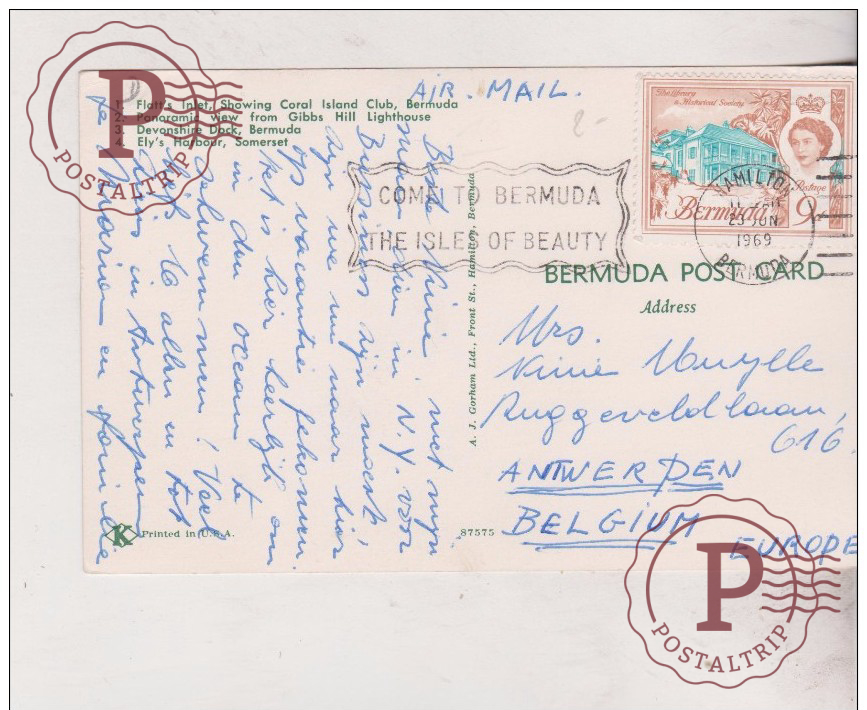 AIR. MAIL.
2-
1. Flatt's Inlet, Showing Coral Island Club, Bermuda
2. Panoramic view from Gibbs Hill Lighthouse
3. Devonshire Dock, Bermuda
4. Ely's Harbour, Somerset
met mijn
in N.Y. voor
Business zijn moest,
zijn we nu naar hier
op vacantie gekomen.
Het is hier heerlijk om
in den oceaan te
zwemmen! Veel
liefs to allen en tot
in Antwerpen
Marion en familie
Printed in U.S.A.
K
87575
A. J. Gorham Ltd., Front St., Hamilton, Bermuda
COME TO BERMUDA
THE ISLES OF BEAUTY
The Library
& Historical Society
Postage
Bermuda
9d
HAMILTON
23 JUN
1969
BERMUDA
BERMUDA POST CARD
Address
Mrs.
Ruggeveldlaan,
616.
ANTWERPEN
BELGIUM
EUROPE
P
POSTALTRIP
P
POSTALTRIP